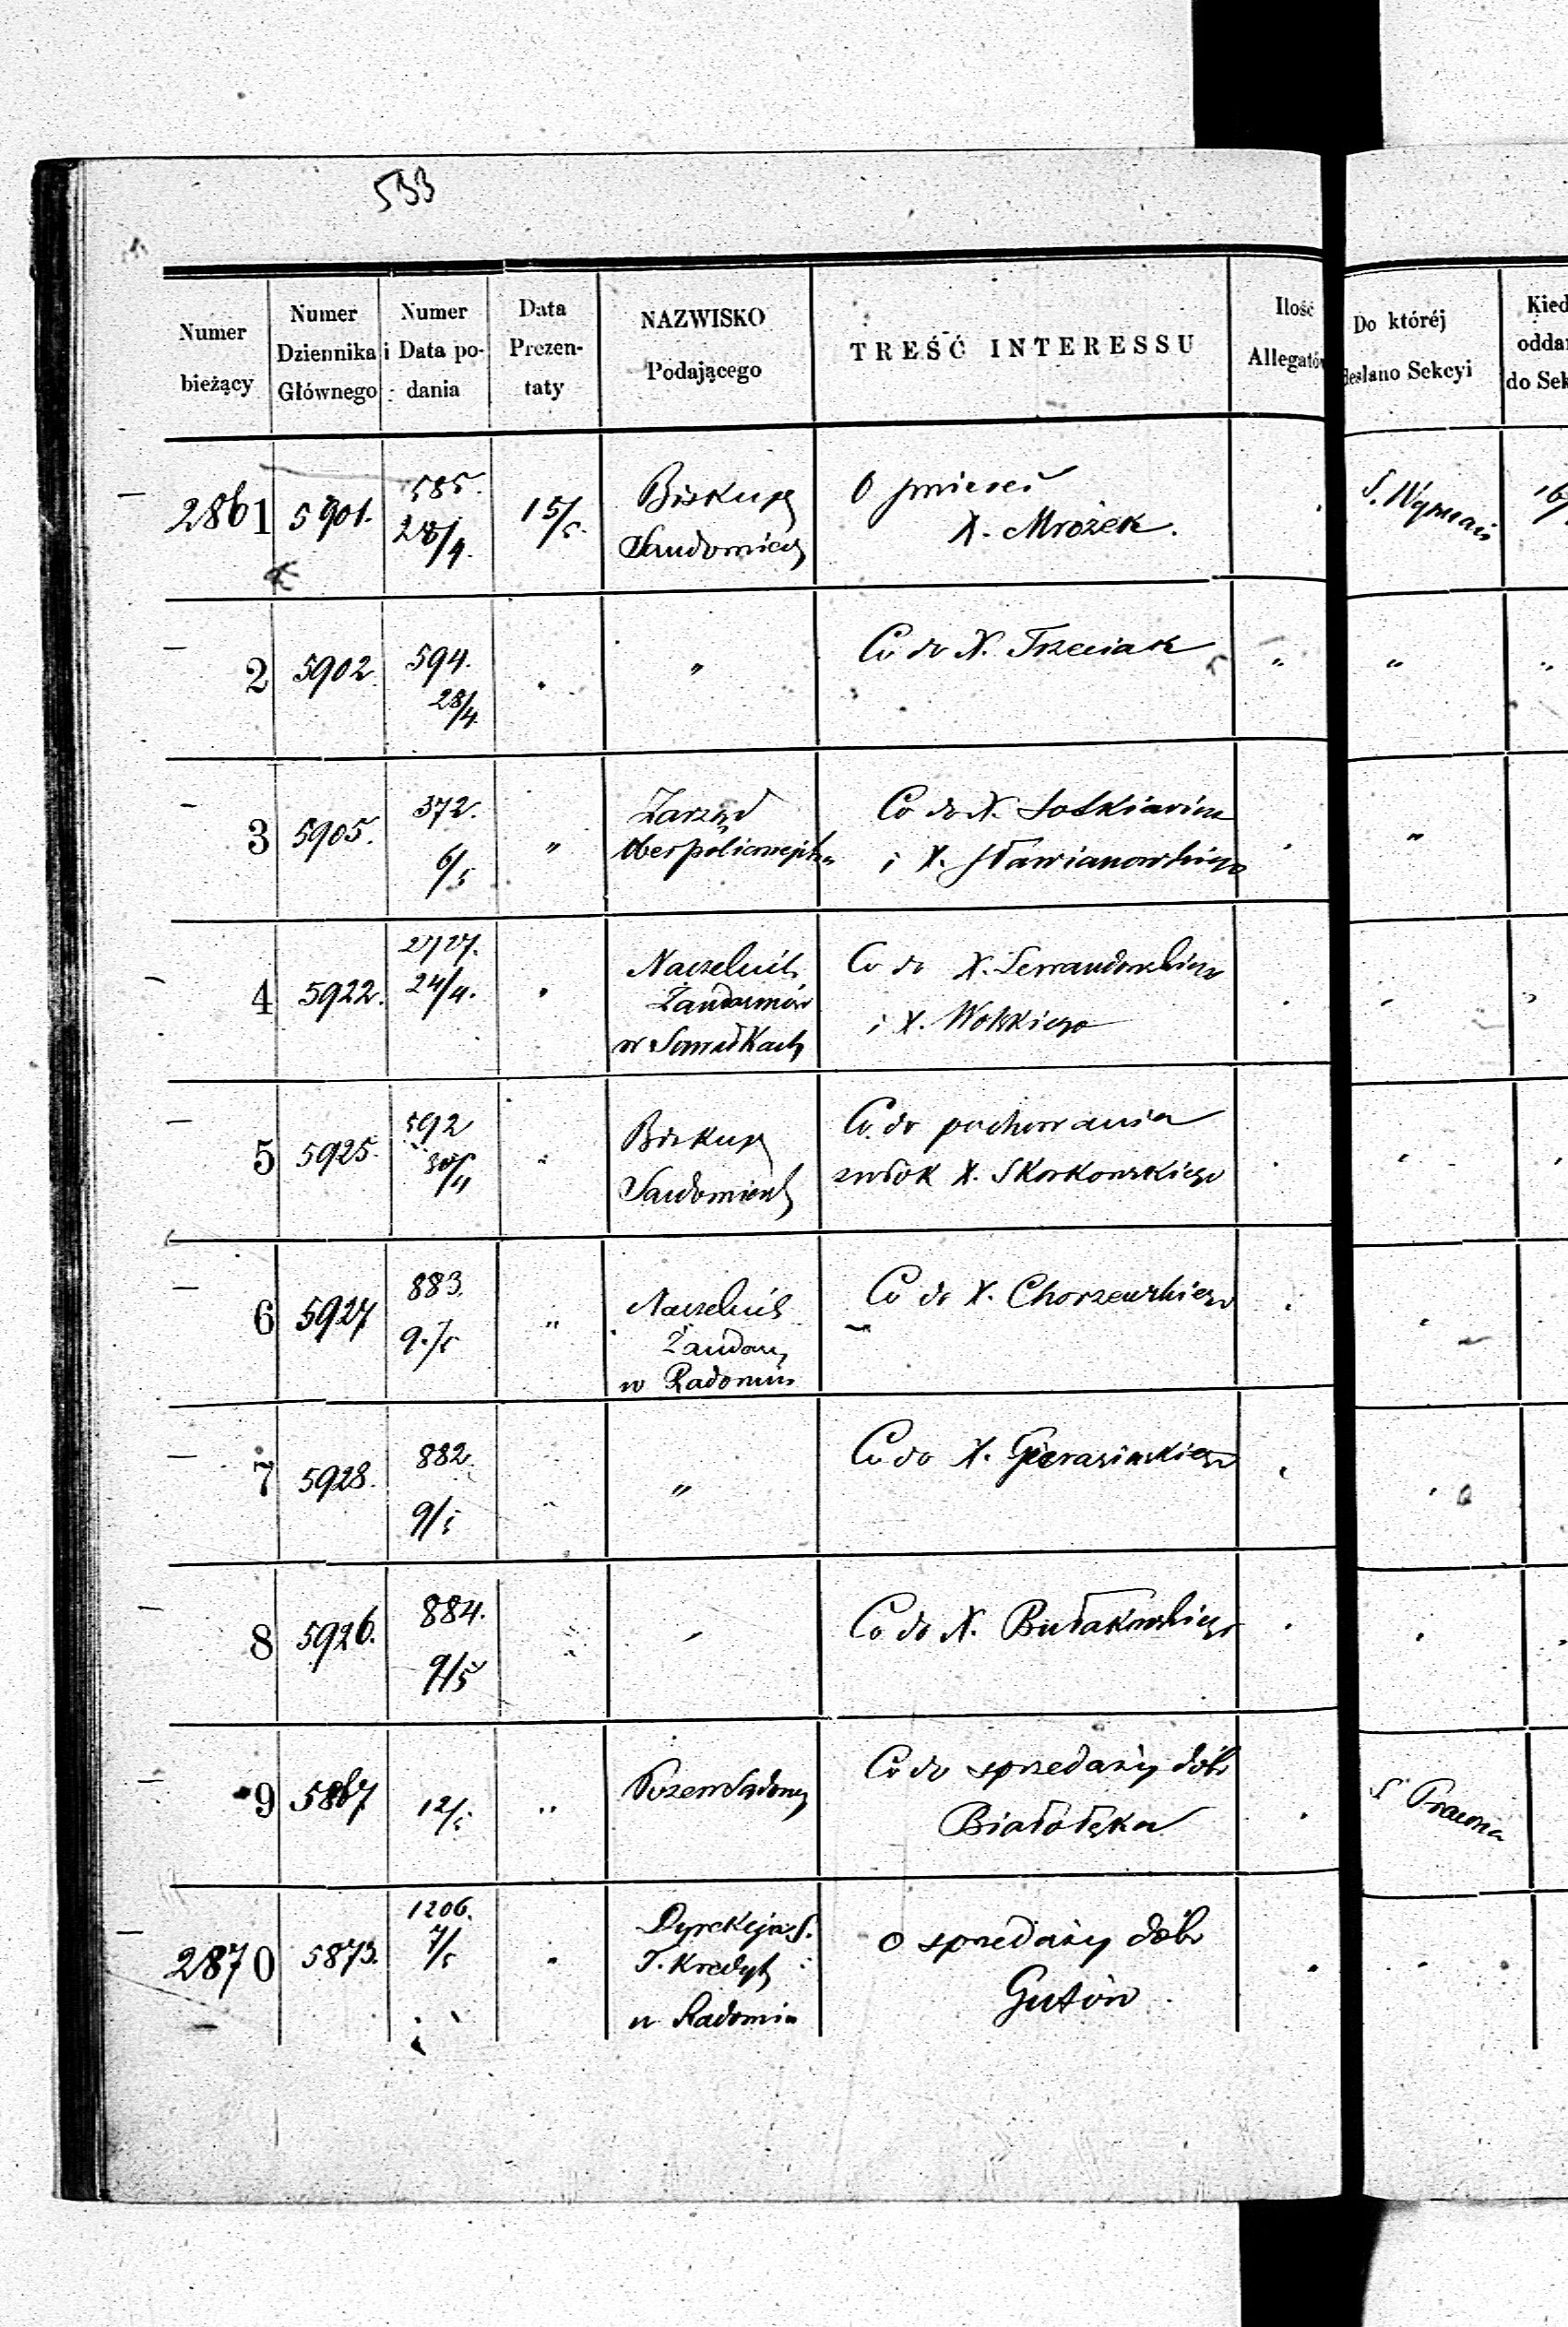 533
Numer bieżący
Numer Dziennika Głównego
Numer i Data podania
Data Prezentaty
NAZWISKO Podającego
TREŚĆ INTERESSU
Ilość Allegatów
Do któréj
desłano Sekcyi
Kied
oddan
do Sek
2861 5901. 585. 28/4. 15/5. Biskup O śmierci
Sandomier X. Mrożek.
S. Wyznań 16/
2 5902 594. 28/4 " Co do X. Trzeciak " "
3 5905. 372. 6/5 " Zarząd Co do X.
Oberpolicmejstra i X. Sławianowskiego "
4 5922. 2727. 24/4. Naczelnik Co do X.
Żandarmów i X. Wolskiego
w Suwałkach
5 5925. 592 Biskup Co do pochowania
Sandomierski zwłok X. Skorkowskiego
6 5927 883. 9/5 " Naczelnik Co do X. Chorzewskiego
Żandar
w Radomiu
7 5928. 882. 9/5 " Co do X. Gierasinskiego
8 5926. 884. 9/5 Co do X. Bułakowskiego
9 5867 12/5 " Co do sprzedaży dóbr
Białołęka
S Prawna
2870 5873. 1206. 7/5 Dyrekcja S. O sprzedaży dóbr
T. Kredyt Gutów
w Radomiu